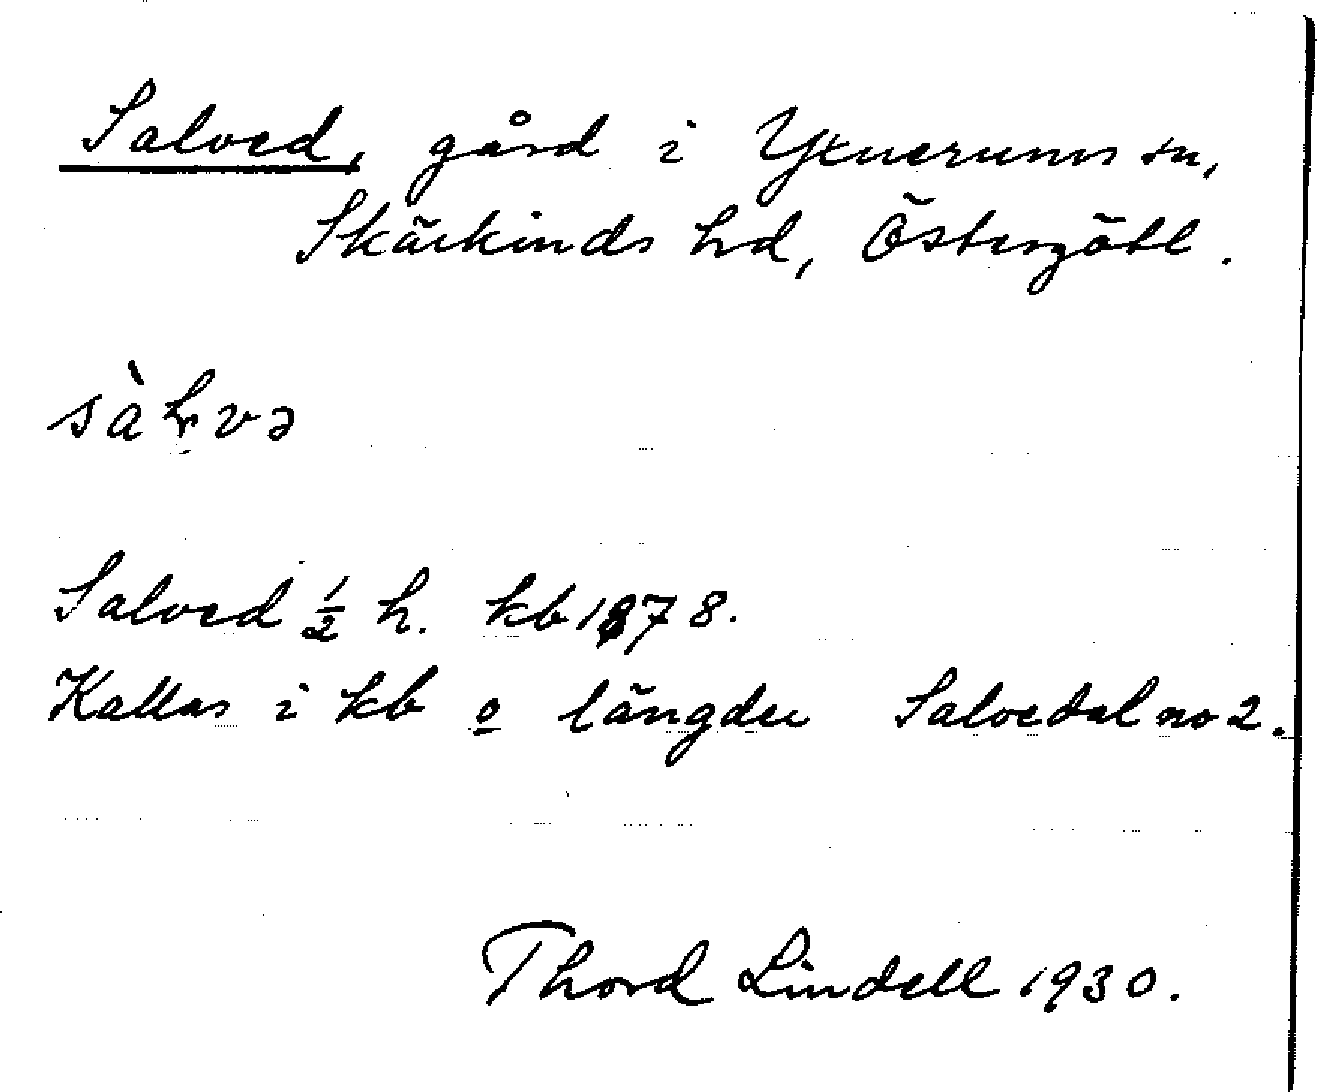 Salved, gård i Yxnerums sn,
Skärkinds hd, Östergötl.
sàłvə
Salved ½ h. kb 1878.
Kallas i kb o längder Salvedal no 2.
Thord Lindell 1930.